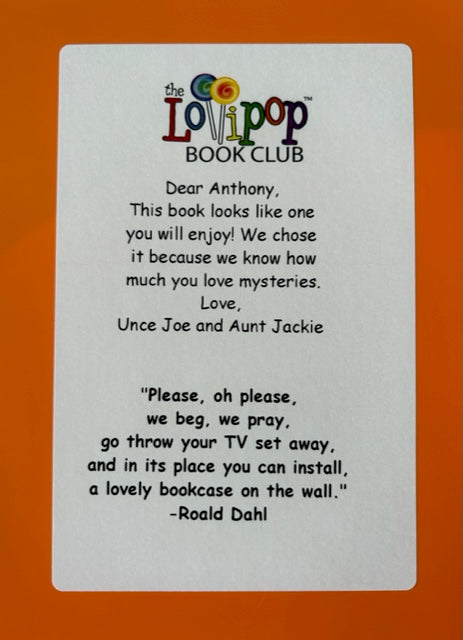 the
Lollipop™
BOOK CLUB
Dear Anthony,
This book looks like one
you will enjoy! We chose
it because we know how
much you love mysteries.
Love,
Unce Joe and Aunt Jackie
"Please, oh please,
we beg, we pray,
go throw your TV set away,
and in its place you can install,
a lovely bookcase on the wall."
-Roald Dahl